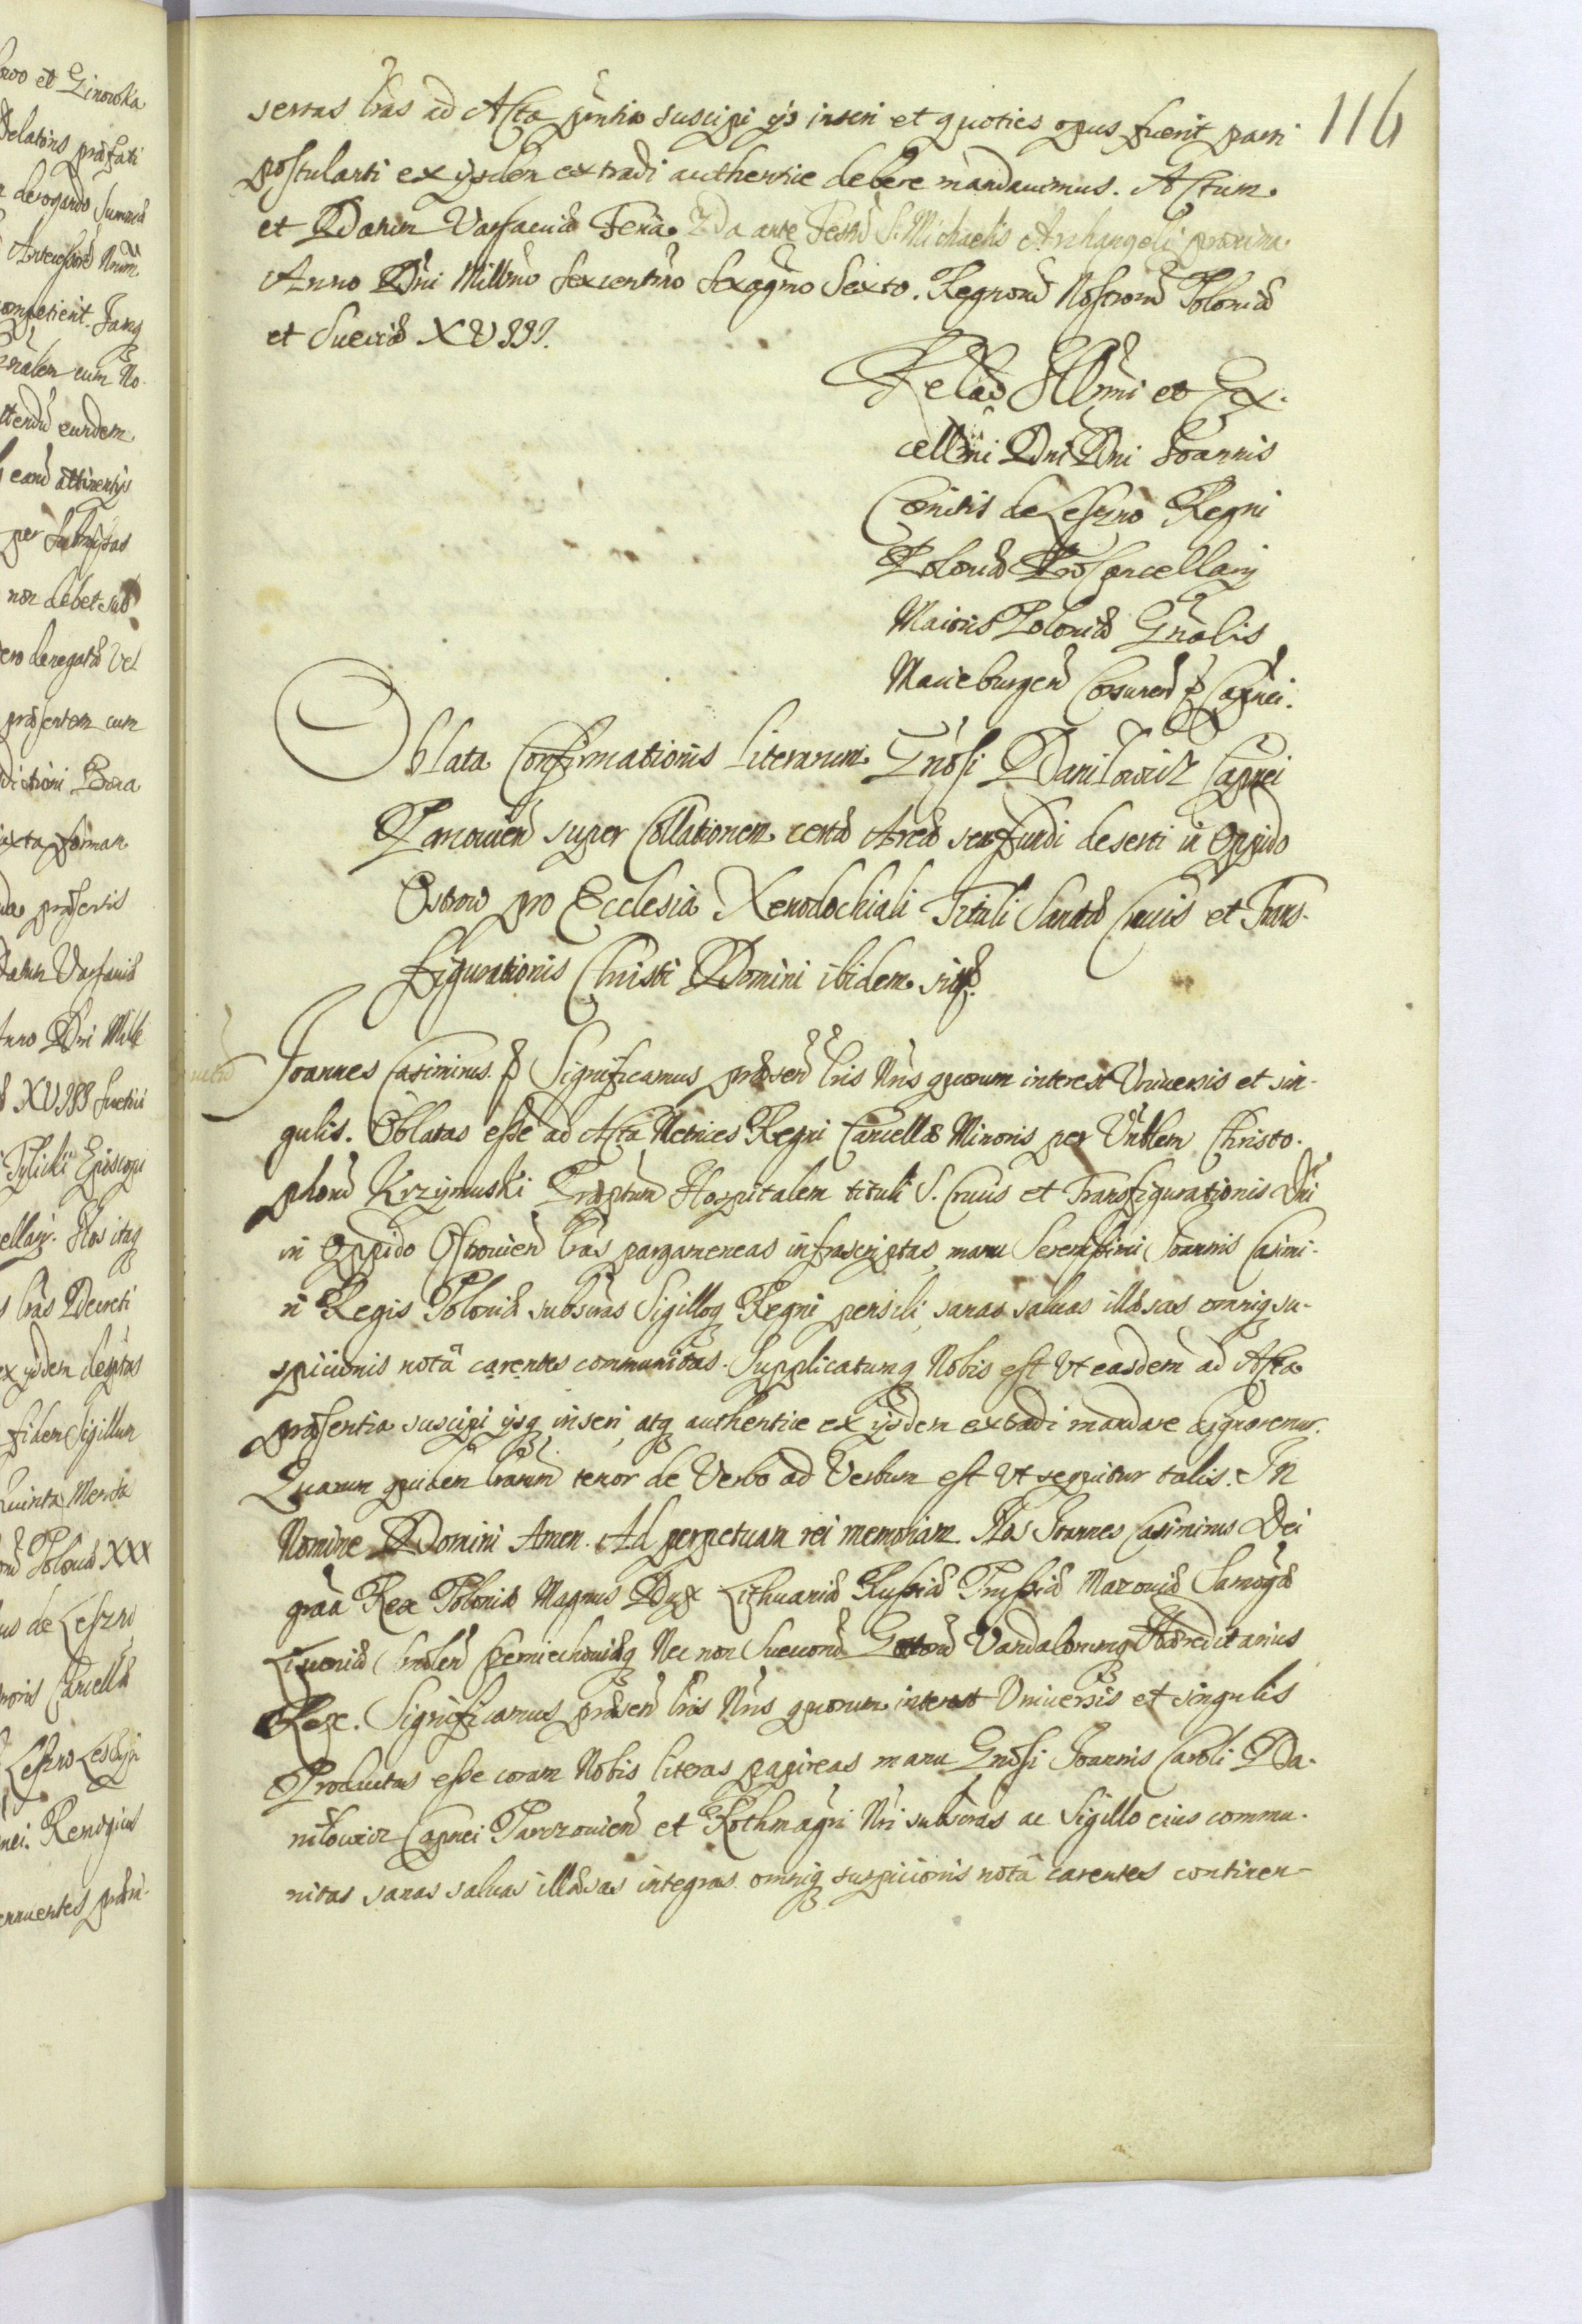 116
sertas lras ad Acta pntia suscipi ijs inseri et quoties opus fuerit parti
postulanti ex ijsdem extradi authentice debere mandauimus. Actum
et Datum Varsauiæ Feria 2da ante Festu S. Michaelis Archangeli proxima
Anno Dni Millmo Sexcentmo Sexagmo Sexto. Regnoru Nostroru Poloniæ
et Sueciæ XVIII.
Relao Illmi et Ex-
cellmi Dni Dni Joannis
Comitis de Leszno Regni
Poloniæ ProCancellarij
Maioris Poloniæ Gnalis
Marieburgen Corsunen p Capnei.
Oblata Confirmationis literarum Gnosi Daniłowicz Capnei
Parczouien super Collationem certæ Areæ seu fundi deserti in Oppido
Ostrow pro Ecclesia Xenodochiali Tituli Sanctæ Crucis et Trans-
figurationis Christi Domini ibidem sitæ.
Joannes Casimirus p Significamus præsen lris Nris quorum interest Vniuersis et sin-
gulis. Oblatas esse ad Acta Metrices Regni Cancellæ Minoris per Vnblem Christo-
phoru Krzymuski Præptum Hospitalem tituli S. Crucis et Transfigurationis Dni
in Oppido Ostrouien lras pargameneas infrascriptas, manu Serenissimi Joannis Casimi-
ri Regis Poloniæ subscras Sigilloq Regni pensili, sanas saluas illæsas omniq su-
spicionis notâ carentes communitas. Supplicatumq Nobis est Vt easdem ad Acta
præsentia suscipi ijsq inseri, atq authentice ex ijsdem extradi mandare dignaremur.
Quarum quidem lrarum tenor de Verbo ad Verbum est Vt sequitur talis. In
Nomine Domini Amen. Ad perpetuam rei memoriam. Nos Joannes Casimirus Dei
graa Rex Poloniæ Magnus Dux Lithuaniæ Russiæ Prussiæ Mazouiæ Samogæ
Liuoniæ Smolen Czerniechouiæq Nec non Sueuoru Gottoru Vandalorumq Hæreditarius
Rex. Significamus præsen lris Nris quorum interest Vniuersis et singulis
Productas esse coram Nobis literas papireas manu Gnosi Joannis Caroli Da-
niłowicz Capnei Parczouien et Rothmagri Nri subscras ac Sigillo eius commu-
nitas sanas saluas illæsas integras omniq suspicionis notâ carentes continen-